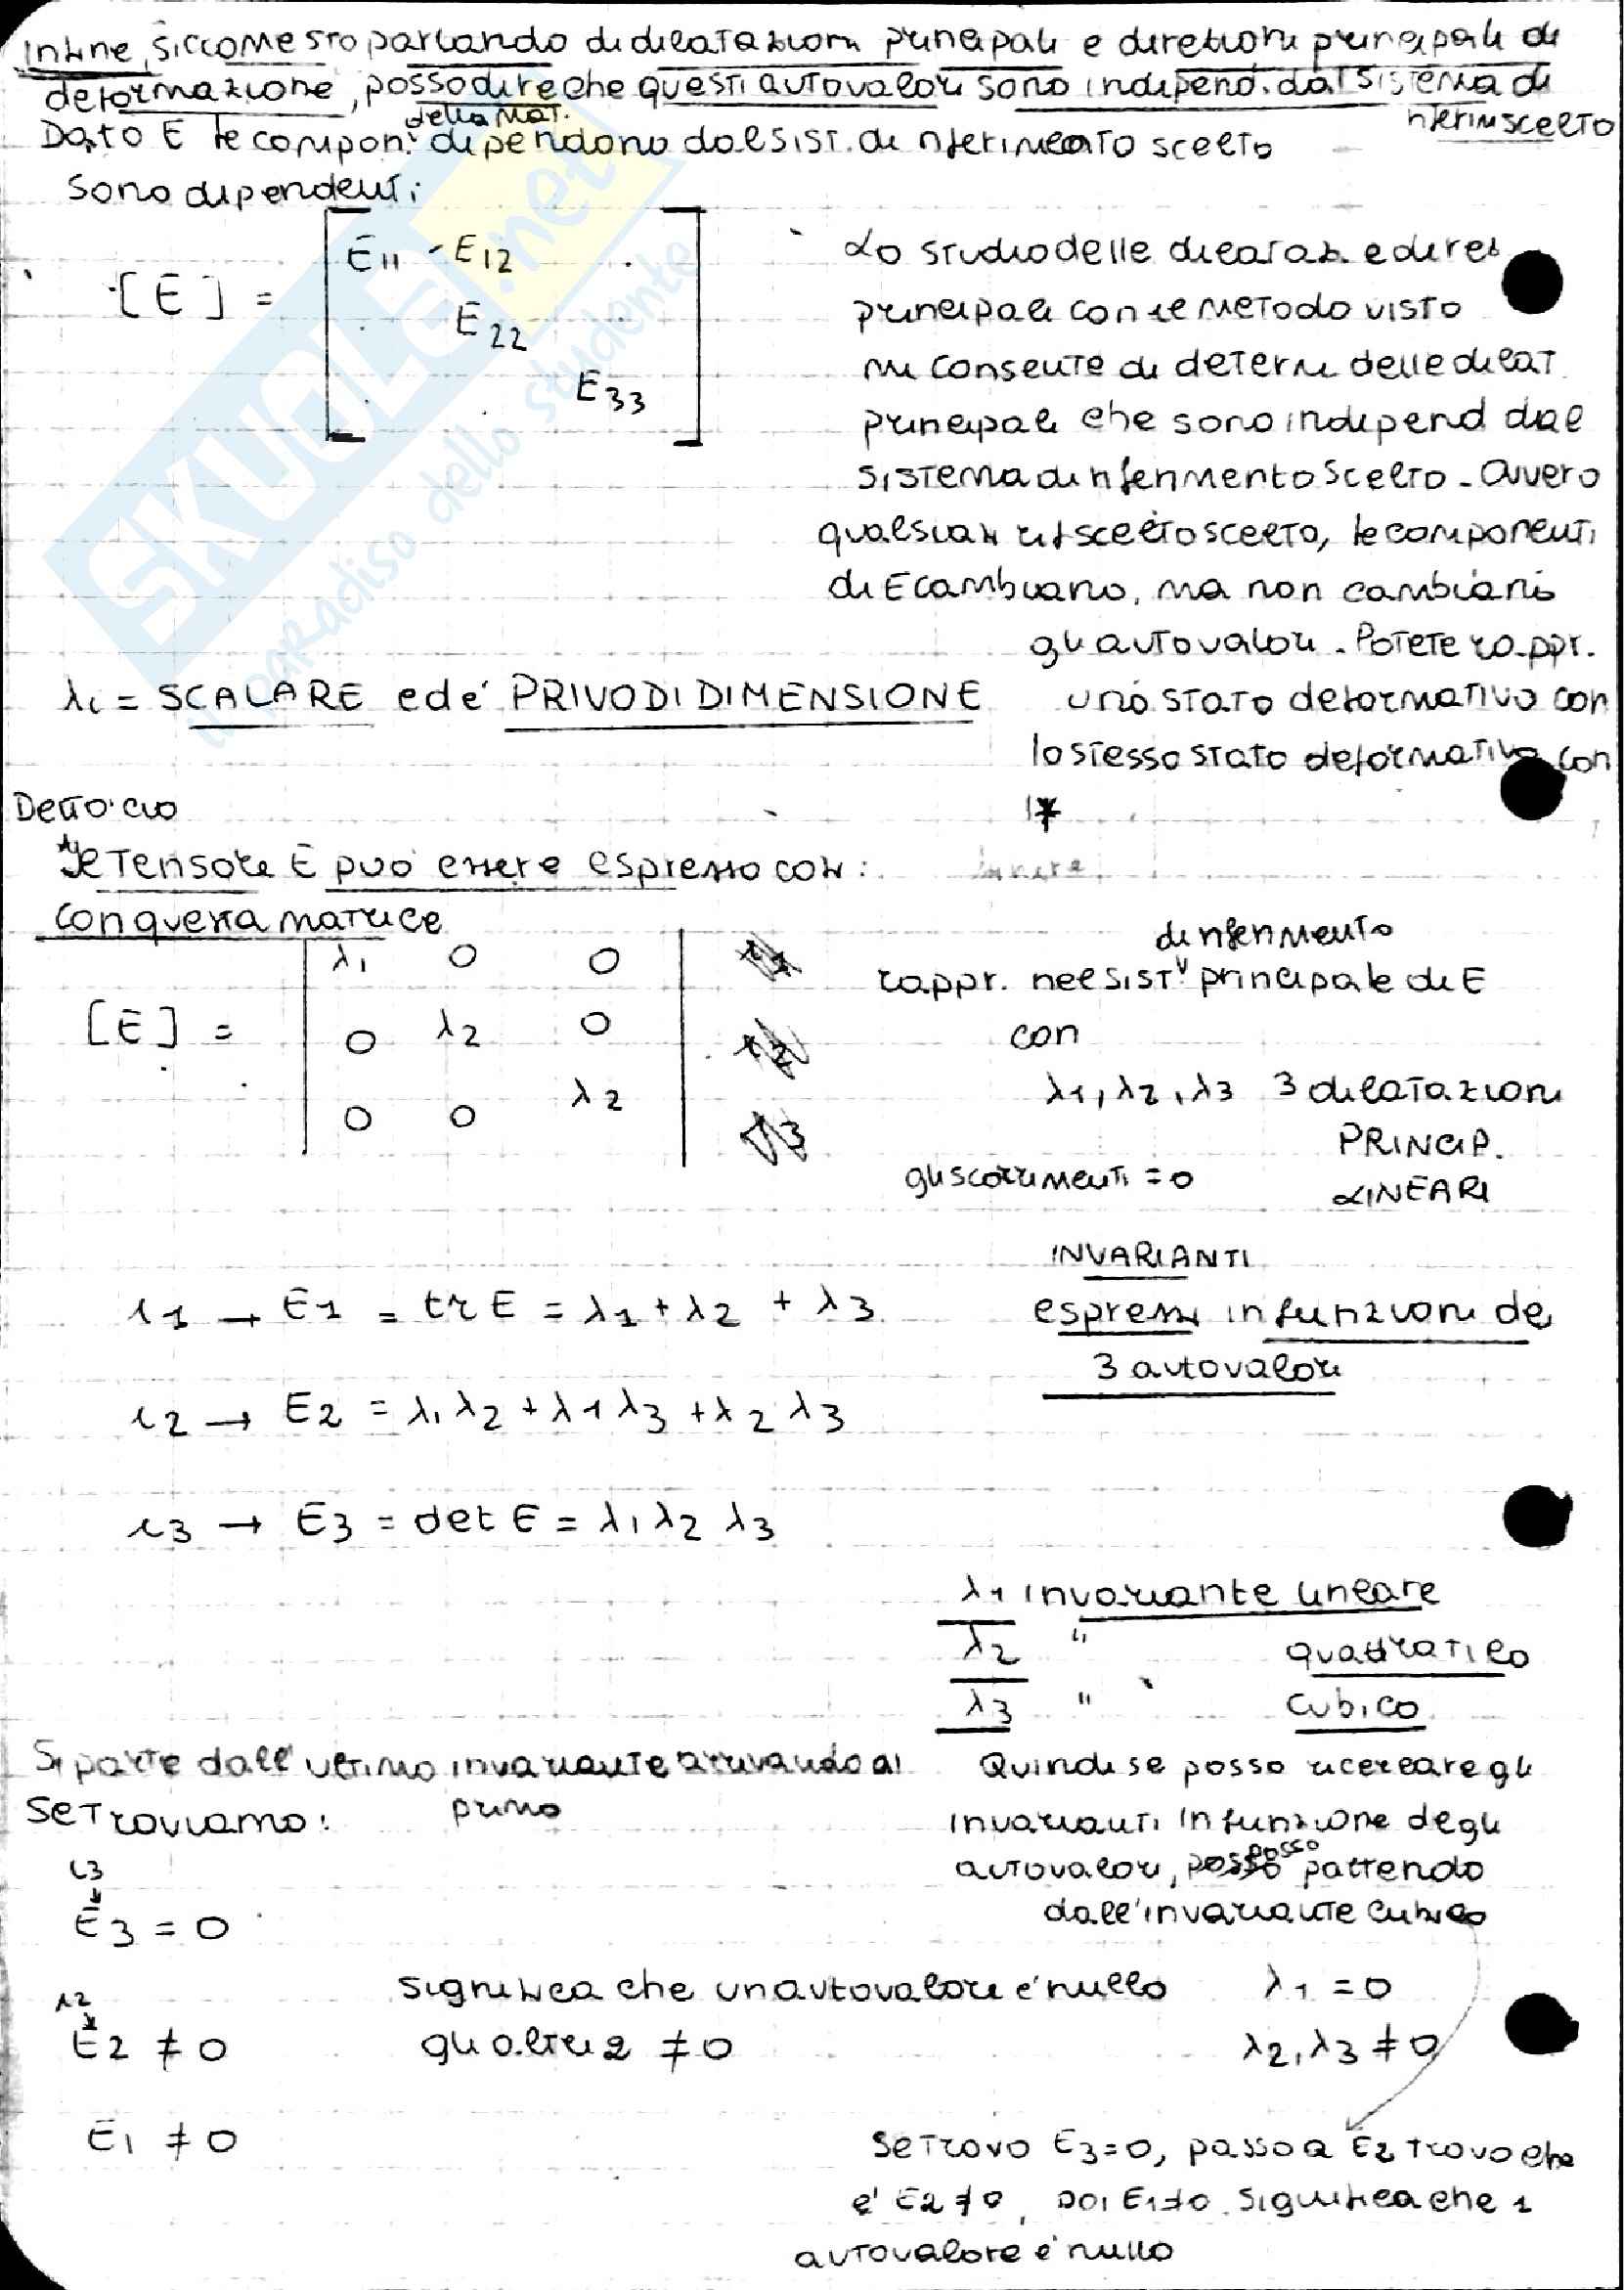 Infine, siccome sto parlando di dilatazioni principali e direzioni principali di
deformazione, posso dire che questi autovalori sono indipend. dal sistema di
riferim scelto
Dato E le compon. della mat. dipendono dal sist. di riferimento scelto
sono dipendenti
[E] =
E11 E12
E22
E33
Lo studio delle dilataz. e direz
principali con il metodo visto
mi consente di determ delle dilat
principali che sono independ dal
sistema di riferimento scelto - ovvero
qualsiasi rif scelto scelto, le componenti
di E cambiano, ma non cambiano
gli autovalori. Potete rappr.
uno stato deformativo con
lo stesso stato deformativo con
λi = SCALARE ed è PRIVO DI DIMENSIONE
Detto ciò
Il tensore E può essere espresso così:
con questa matrice
[E] =
λ1 0 0
0 λ2 0
0 0 λ2
di riferimento
rappr. nel sist. principale di E
con
λ1, λ2, λ3 3 dilatazioni
PRINCIP.
LINEARI
gli scorrimenti = 0
INVARIANTI
espressi in funzioni dei
3 autovalori
i1 → E1 = tr E = λ1 + λ2 + λ3
i2 → E2 = λ1 λ2 + λ1 λ3 + λ2 λ3
i3 → E3 = det E = λ1 λ2 λ3
λ1 invariante lineare
λ2 " quadratico
λ3 " cubico
Si parte dall'ultimo invariante arrivando al
primo
Se troviamo:
Quindi se posso ricercare gli
invarianti in funzione degli
autovalori, posso partendo
dall'invariante cubico
i3
E3 = 0
i2
E2 ≠ 0
E1 ≠ 0
significa che un autovalore è nullo
gli altri 2 ≠ 0
λ1 = 0
λ2, λ3 ≠ 0
se trovo E3=0, passo a E2 trovo che
è E2 ≠ 0, poi E1≠0 significa che 1
autovalore è nullo
SKUOLA.net
il paradiso dello studente